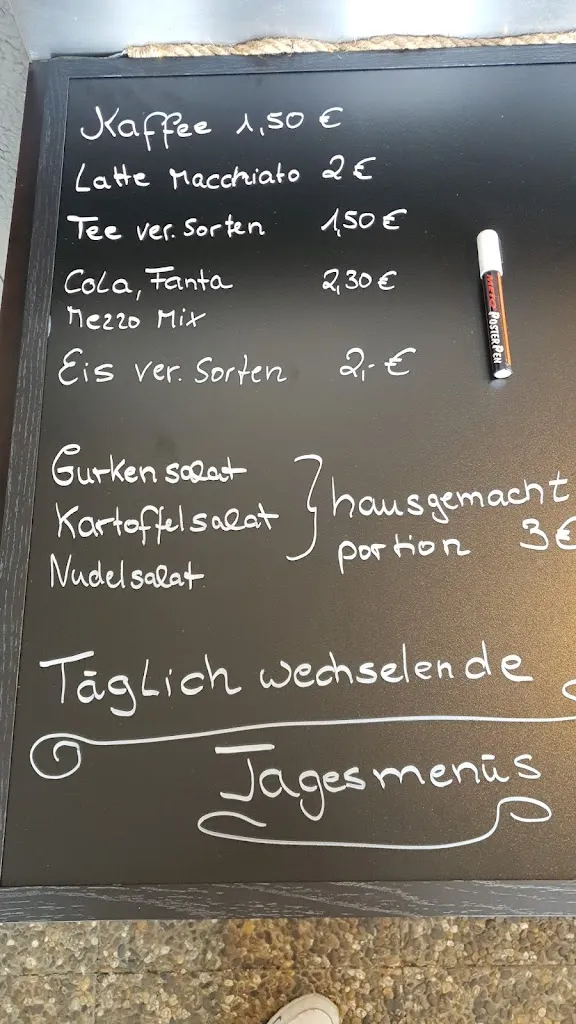 Kaffee 1,50 €
Latte Macchiato 2 €
Tee ver. Sorten 1,50 €
Cola, Fanta 2,30 €
Mezzo Mix
Eis ver. Sorten 2,- €
Gurkensalat
Kartoffelsalat
Nudelsalat
hausgemacht
portion 3 €
Täglich wechselende
Tagesmenüs
POSTERPEN